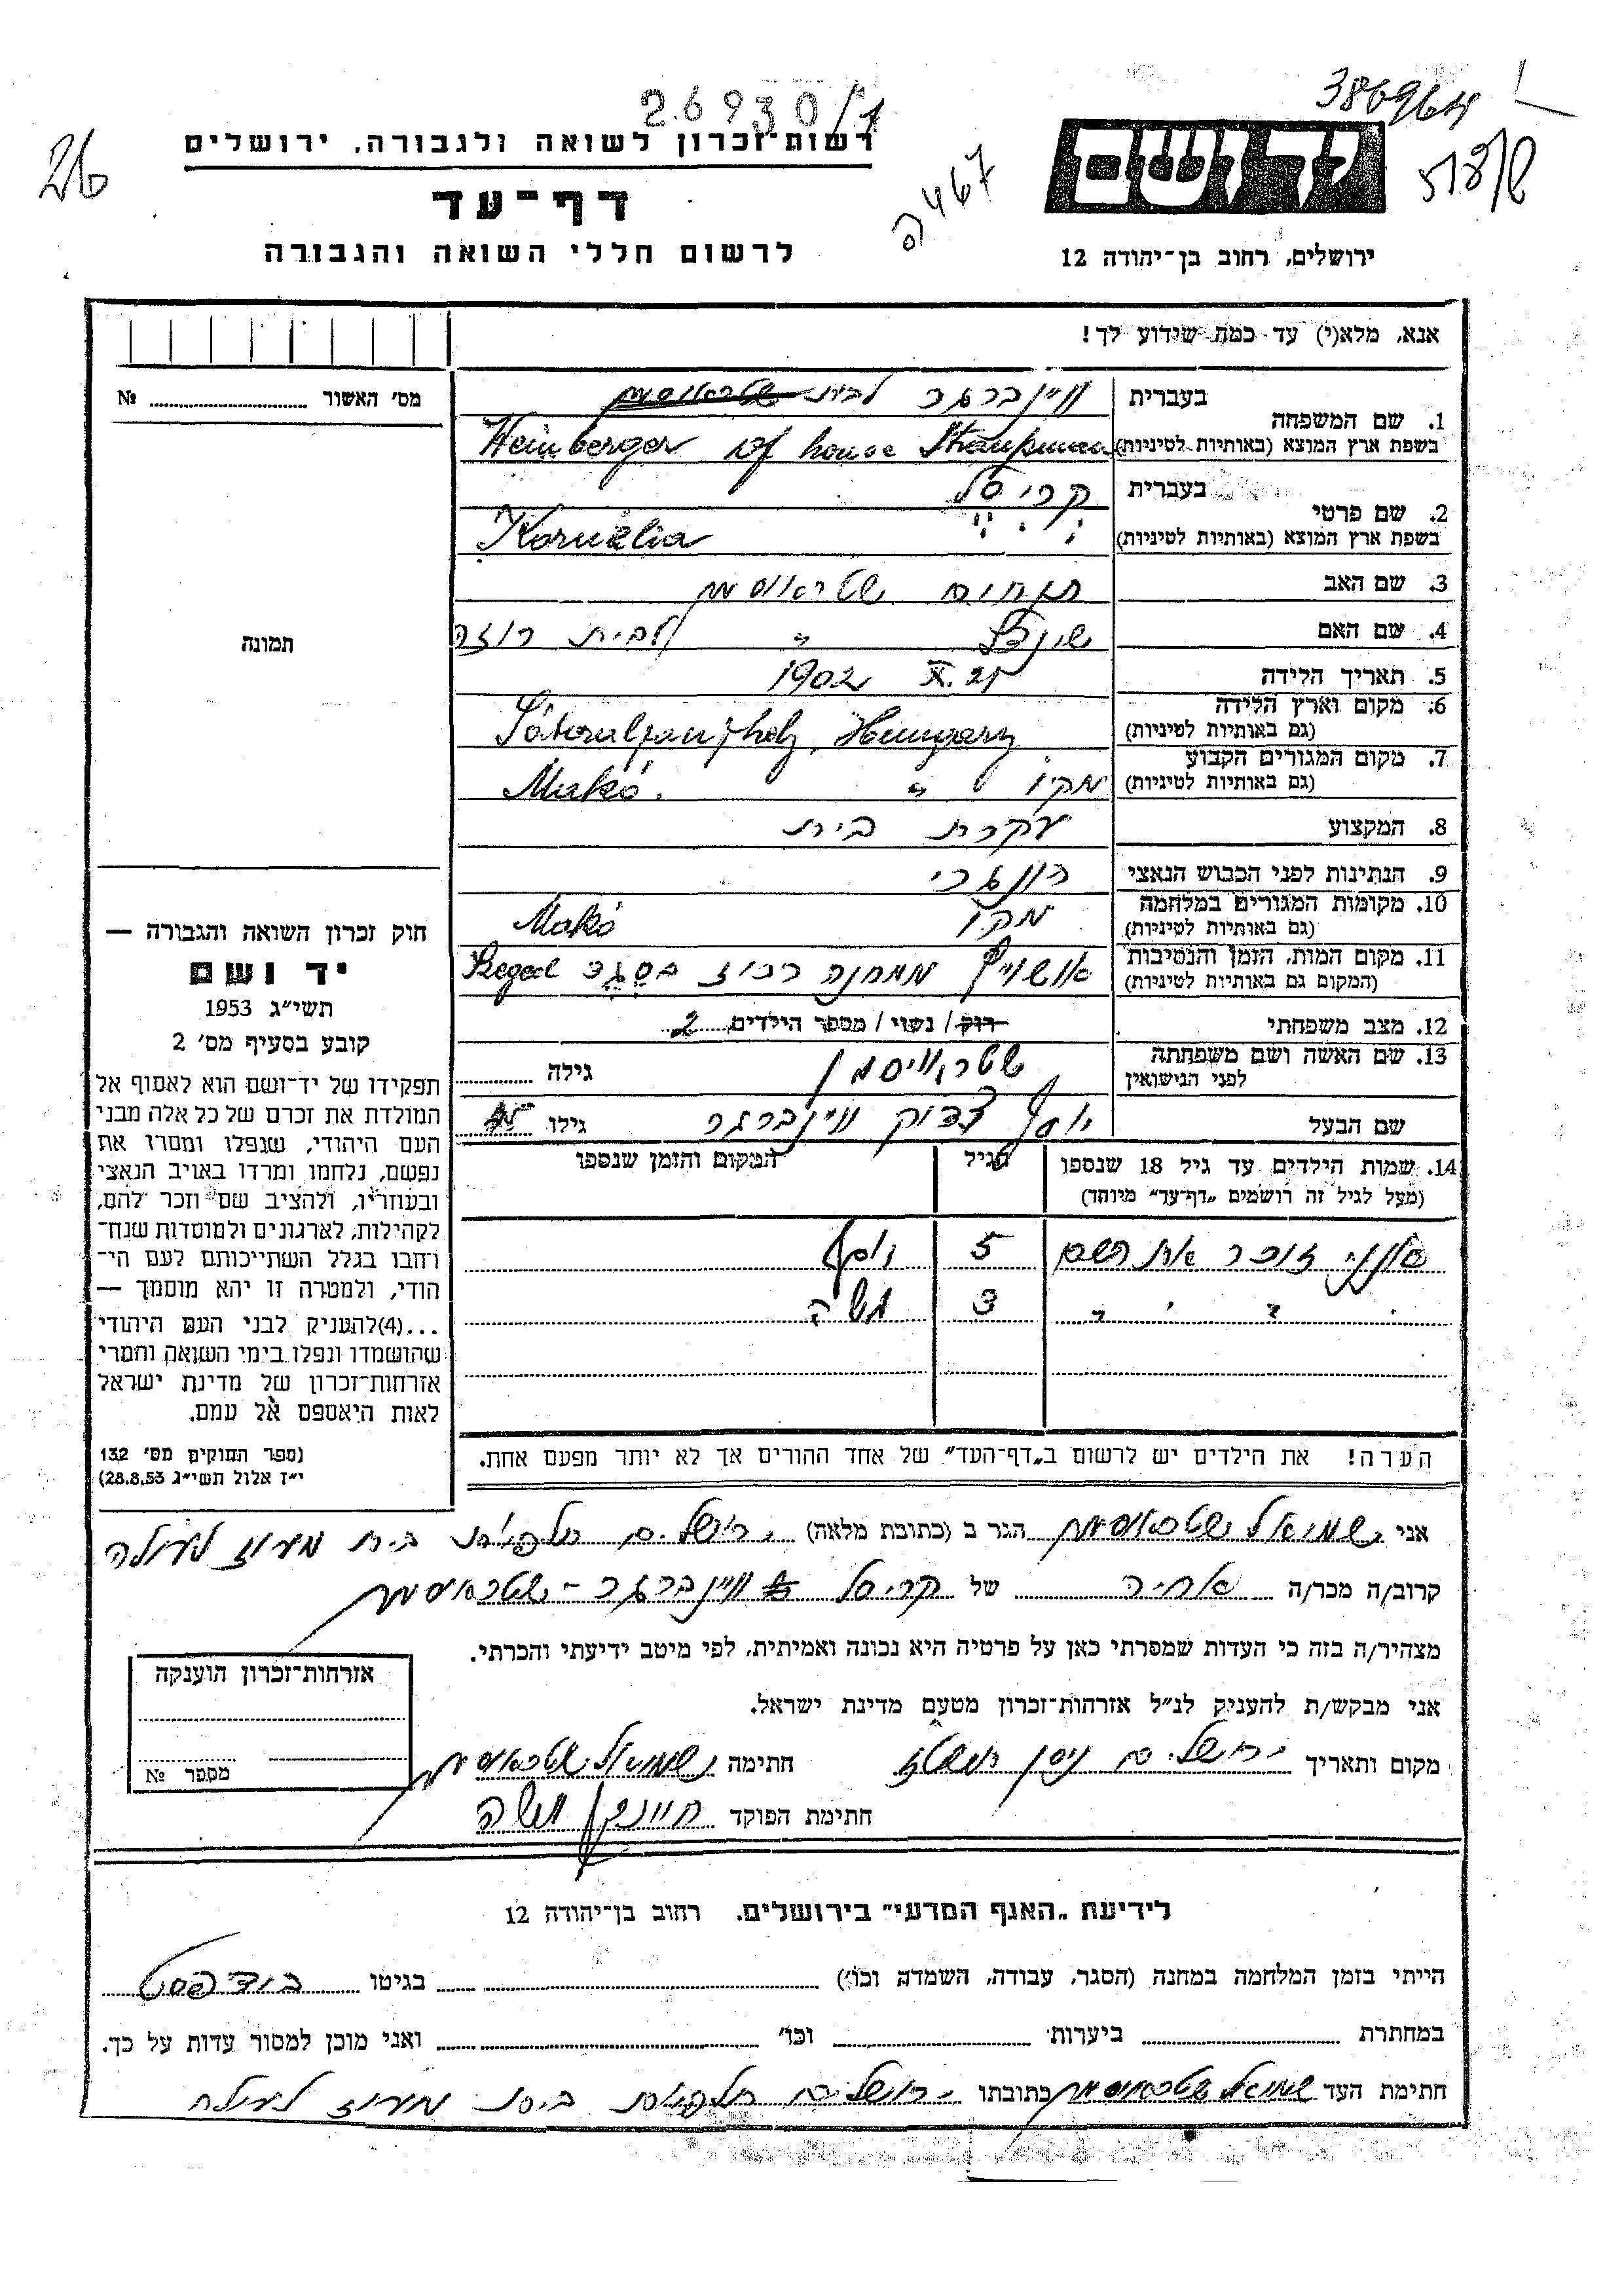 26930/1
386964
467
26
רשות־זכרון לשואה ולגבורה, ירושלים
דף־עד
לרשום חללי השואה והגבורה
יד ושם
ירושלים, רחוב בן־יהודה 12
אנא, מלא(י) עד כמה שידוע לך!
מס' האשור № 
1. שם המשפחה
בעברית ויינברגר לבית שטראוסמן
בשפת ארץ המוצא (באותיות לטיניות) Weinberger of house
2. שם פרטי
בעברית קריסל
בשפת ארץ המוצא (באותיות לטיניות) Kornélia
3. שם האב תנחום שטראוסמן
4. שם האם שינדל " לבית רוזה
5. תאריך הלידה 21 X. 1902
6. מקום וארץ הלידה
(גם באותיות לטיניות) Sátoraljaujhely, Hungary
7. מקום המגורים הקבוע
(גם באותיות לטיניות) מקו " Makó.
8. המקצוע עקרת בית
9. הנתינות לפני הכבוש הנאצי הונגרי
10. מקומות המגורים במלחמה
(גם באותיות לטיניות) מקו Makó
11. מקום המות, הזמן והנסיבות
(המקום גם באותיות לטיניות) אושויץ ממחנה רכוז בסגד Szeged
12. מצב משפחתי רוק / נשוי / מספר הילדים 2
13. שם האשה ושם משפחתה
לפני הנישואין שטראויסמן גילה
שם הבעל יוסף צדוק ויינברגר גילו
14. שמות הילדים עד גיל 18 שנספו הגיל המקום והזמן שנספו
(מעל לגיל זה רושמים „דף־עד" מיוחד)
אינני זוכר את השם 5 יוסף
" " " 3 משה
הערה! את הילדים יש לרשום ב„דף־העד" של אחד ההורים אך לא יותר מפעם אחת.
תמונה
חוק זכרון השואה והגבורה —
יד ושם
תשי״ג 1953
קובע בסעיף מס' 2
תפקידו של יד־ושם הוא לאסוף אל
המולדת את זכרם של כל אלה מבני
העם היהודי, שנפלו ומסרו את
נפשם, נלחמו ומרדו באויב הנאצי
ובעוזריו, ולהציב שם וזכר להם,
לקהילות, לארגונים ולמוסדות שנח־
רחבו בגלל השתייכותם לעם הי־
הודי, ולמטרה זו יהא מוסמך —
...(4)להעניק לבני העם היהודי
שהושמדו ונפלו בימי השואה והמרי
אזרחות־זכרון של מדינת ישראל
לאות היאספם אל עמם.
(ספר החוקים מס' 132
י״ז אלול תשי״ג 28.8.53)
אני שמואל שטראוסמן הגר ב (כתובת מלאה) ירושלים תלפיות בית מעוז לעולה
קרוב/ה מכר/ה אחיה של קריסל ויינברגר – שטראוסמן
מצהיר/ה בזה כי העדות שמסרתי כאן על פרטיה היא נכונה ואמיתית, לפי מיטב ידיעתי והכרתי.
אני מבקש/ת להעניק לנ״ל אזרחות־זכרון מטעם מדינת ישראל.
מקום ותאריך ירושלים ניסן חתימה שמואל שטראוסמן
חתימת הפוקד משה
אזרחות־זכרון הוענקה
מספר №
לידיעת „האגף המדעי" בירושלים. רחוב בן־יהודה 12
הייתי בזמן המלחמה במחנה (הסגר, עבודה, השמדה וכו') בגיטו בודפסט
במחתרת ביערות וכו' ואני מוכן למסור עדות על כך.
חתימת העד שמואל שטראוסמן כתובתו ירושלים תלפיות בית מעוז לעולה